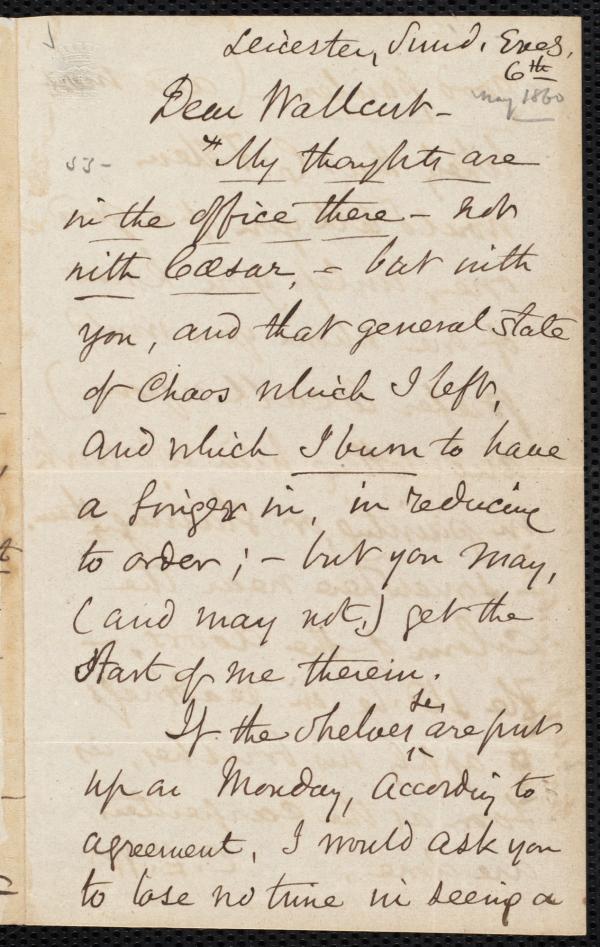 Leicester, Sund. Eveg.
6th
May 1860
Dear Wallcut -
"My thoughts are
in the office there - not
with Cæsar, - but with
you, and that general state
of Chaos which I left,
and which I burn to have
a finger in, in reducing
to order; - but you may,
(and may not,) get the
start of me therein.
If the shelves are put
up on Monday, according to
agreement, I would ask you
to lose no time in seeing a